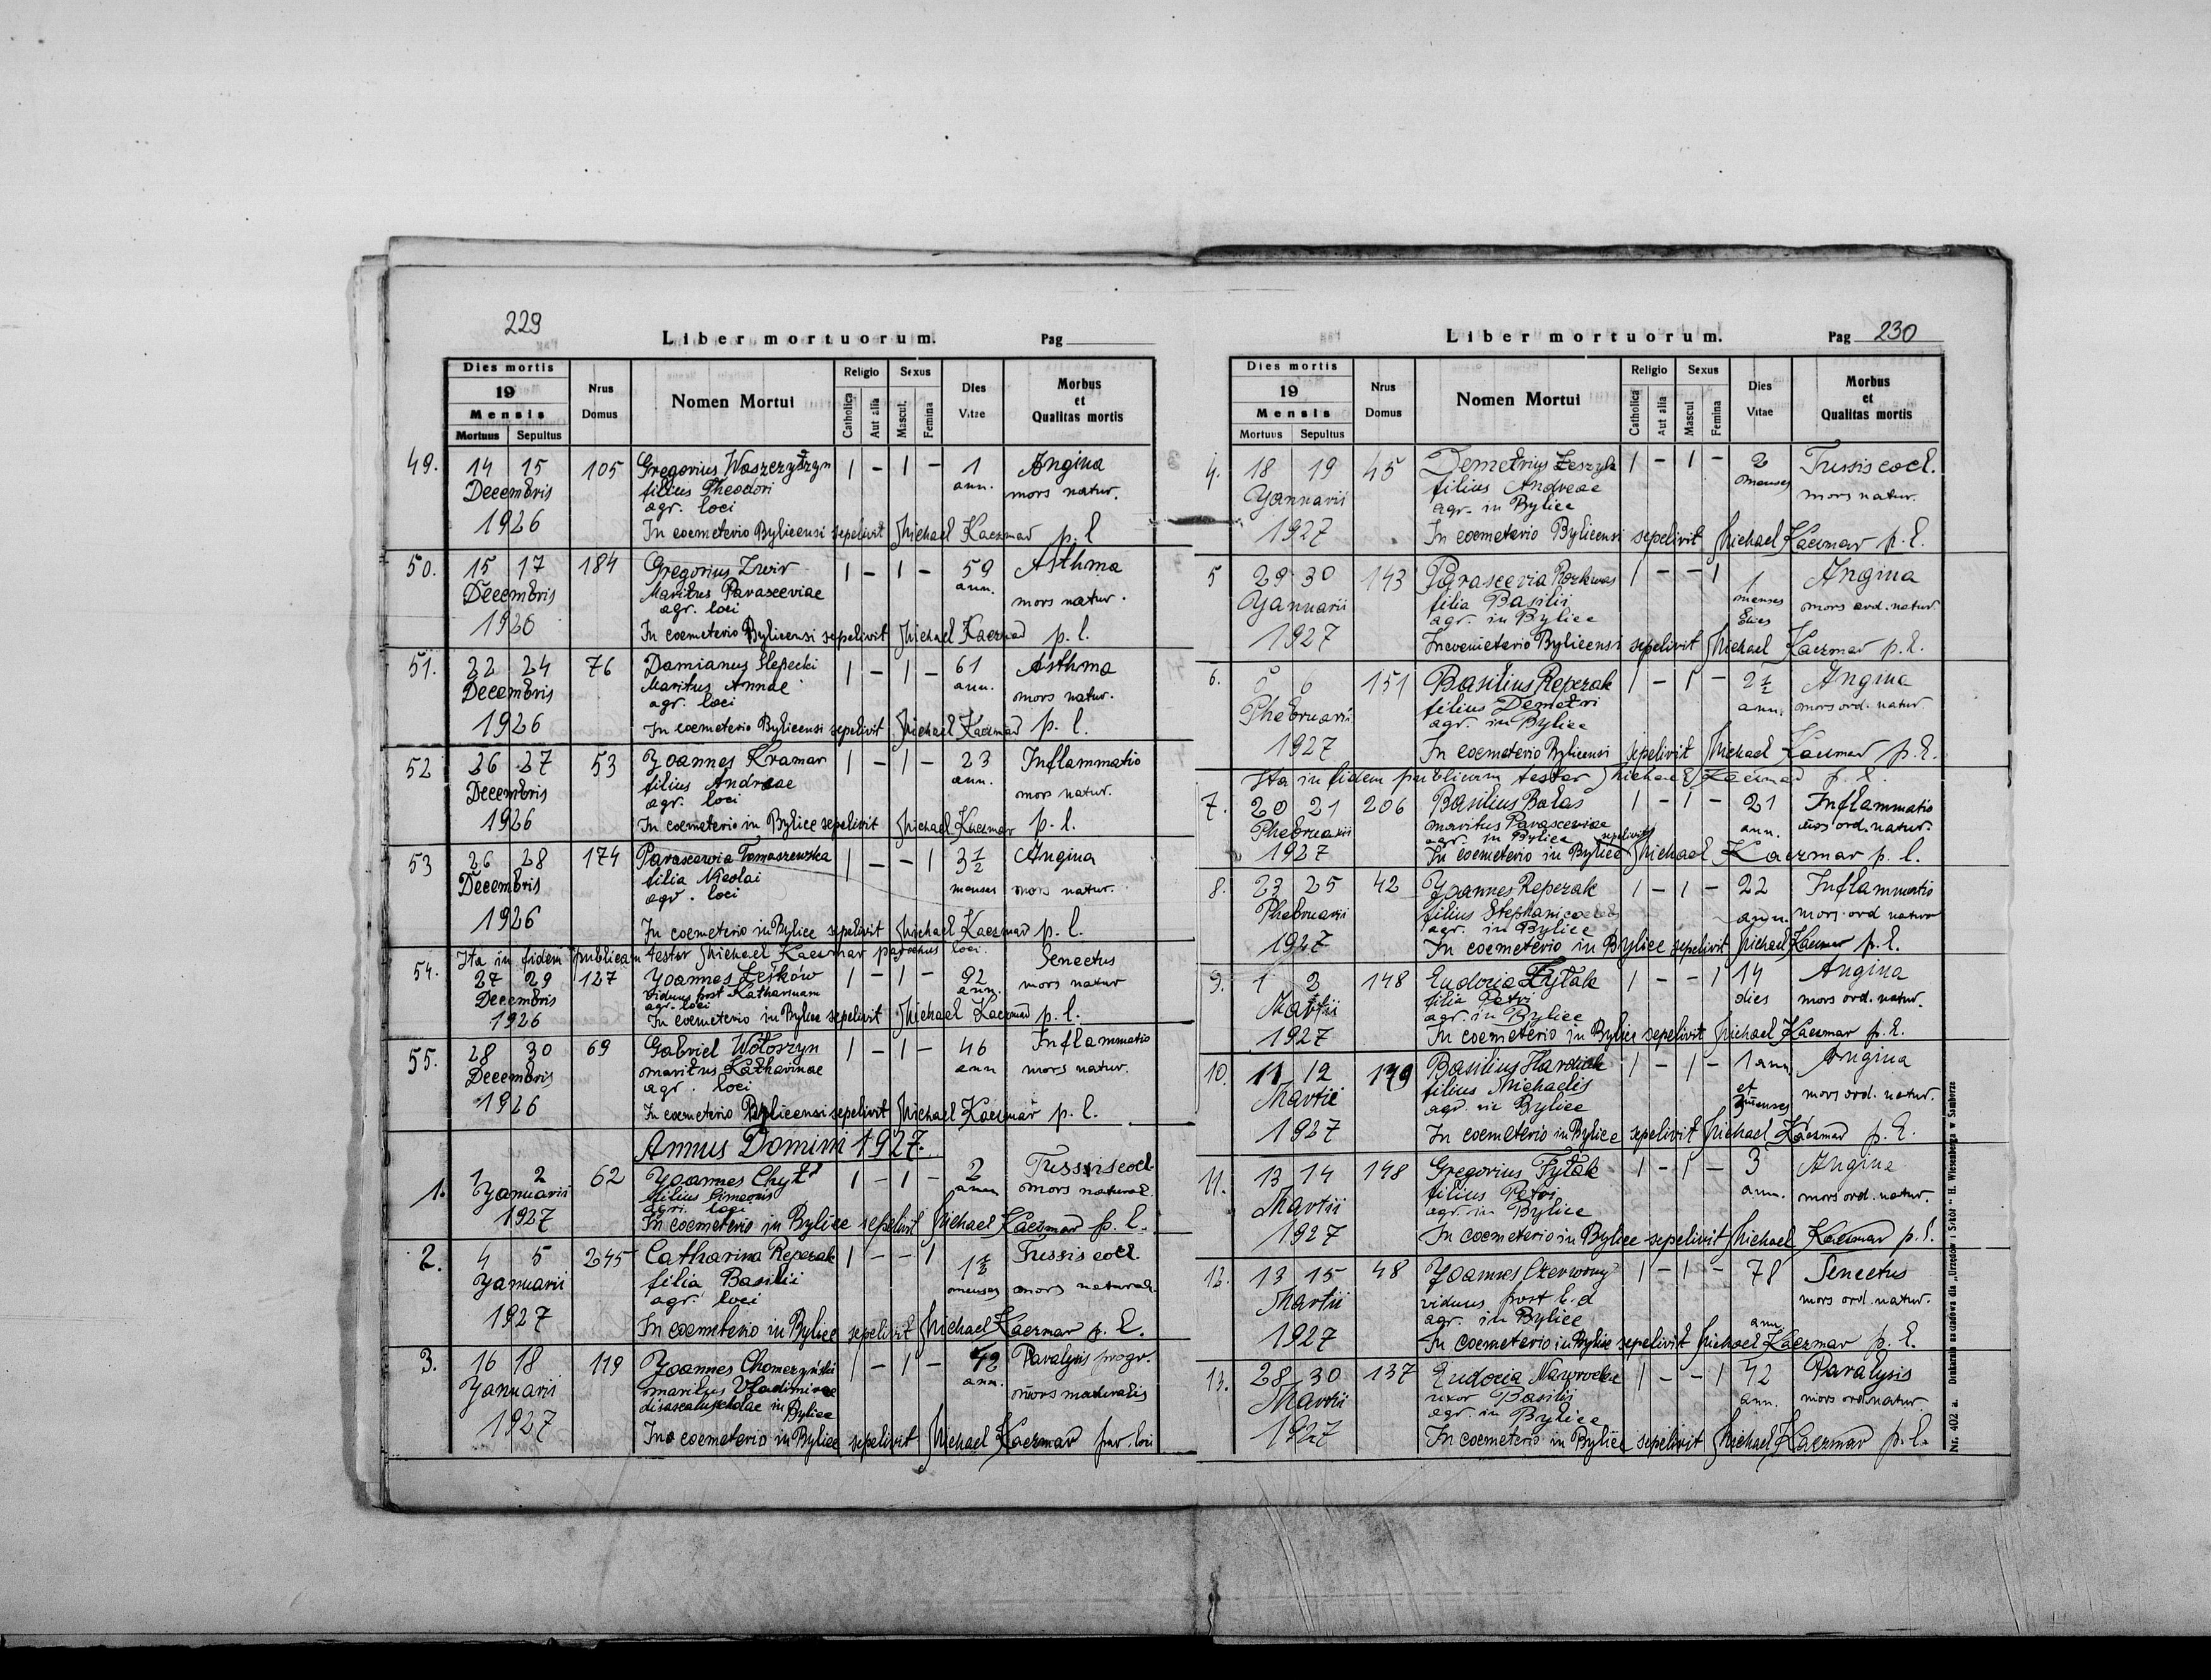 229
Liber mortuorum. Pag
Dies mortis
19
Mensis
Mortuus Sepultus
Nrus Domus
Nomen Mortui
Religio
Catholica Aut alia
Sexus
Mascul. Femina
Dies Vitae
Morbus et Qualitas mortis
49. 14 15 105 Gregorius 1 - 1 - 1 Angina
Decembris filius Theodori ann. mors natur.
agr. loci
1926 In coemeterio Bylicensi sepelivit Michael Kaczmar p. l
50. 15 17 184 Gregorius Zwir 1 - 1 - 59 Asthma
Decembris Maritus Parasceviae ann. mors natur.
agr. loci
1926 In coemeterio Bylicensi sepelivit Michael Kaczmar p. l.
51. 22 24 76 Damianus Slepecki 1 - 1 - 61 Asthma
Decembris Maritus Annae ann. mors natur.
agr. loci
1926 In coemeterio Bylicensi sepelivit Michael Kaczmar p. l.
52 26 27 53 Joannes Kramar 1 - 1 - 23 Inflammatio
Decembris filius Andreae ann. mors natur.
agr. loci
1926 In coemeterio in Bylice sepelivit Michael Kaczmar p. l.
53 26 28 174 Parascewia Tomaszewska 1 - - 1 3½ Angina
Decembris filia Nicolai menses mors natur.
agr. loci
1926 In coemeterio in Bylice sepelivit Michael Kaczmar p. l.
Ita in fidem publicam testor Michael Kaczmar parochus loci.
54. 27 29 127 Joannes Leśków 1 - 1 - 92 Senectus
Decembris viduus post Katharinam ann. mors natur
agr. loci
1926 In coemeterio in Bylice sepelivit Michael Kaczmar p. l.
55. 28 30 69 Gabriel Wołoszyn 1 - 1 - 46 Inflammatio
Decembris maritus Katharinae ann mors natur.
agr. loci
1926 In coemeterio Bylicensi sepelivit Michael Kaczmar p. l.
Annus Domini 1927.
1. 1 2 62 Joannes Chyt 1 - 1 - 2 Tussis cocl.
Januarii filius Simeonis mors natural.
agr. loci
1927 In coemeterio in Bylice sepelivit Michael Kaczmar p. l.
2. 4 5 245 Catharina Repezak 1 - - 1 1½ Tussis cocl.
Januarii filia Basilii menses mors natural.
agr. loci
1927 In coemeterio in Bylice sepelivit Michael Kaczmar p. l.
3. 16 18 119 Joannes Chomczyński 1 - 1 - 42 Paralysis progr.
Januarii maritus Vladimirae ann. mors naturalis
scholae in Bylice
1927 In coemeterio in Bylice sepelivit Michael Kaczmar par. loci
Liber mortuorum. Pag 230
Dies mortis
19
Mensis
Mortuus Sepultus
Nrus Domus
Nomen Mortui
Religio
Catholica Aut alia
Sexus
Mascul Femina
Dies Vitae
Morbus et Qualitas mortis
4. 18 19 45 Demetrius Leszyk 1 - 1 - 2 Tussis cocl.
Januarii filius Andreae menses mors natur.
agr. in Bylice
1927 In coemeterio Bylicensi sepelivit Michael Kaczmar p. l.
5 29 30 143 Parascevia 1 - - 1 1 Angina
Januarii filia Basilii menses mors ord. natur.
agr. in Bylice
1927 In coemeterio Bylicensi sepelivit Michael Kaczmar p. l.
6. 5 6 151 Basilius Repezak 1 - 1 - 2½ Angina
Phebruarii filius Demetri ann. mors ord. natur
agr. in Bylice
1927 In coemeterio Bylicensi sepelivit Michael Kaczmar p. l.
Ita in fidem publicam testor Michael Kaczmar p. l.
7. 20 21 206 Basilius Bałas 1 - 1 - 21 Inflammatio
Phebruarii maritus Parasceviae ann. mors ord. natur.
agr. in Bylice sepelivit
1927 In coemeterio in Bylice Michael Kaczmar p. l.
8. 23 25 42 Joannes Repezak 1 - 1 - 22 Inflammatio
Phebruarii filius Stephani ann. mors ord natur
agr. in Bylice
1927 In coemeterio in Bylice sepelivit Michael Kaczmar p. l.
9. 1 2 148 Eudocia Fytak 1 - - 1 14 Angina
Martii filia Petri dies mors ord. natur.
agr. in Bylice
1927 In coemeterio in Bylice sepelivit Michael Kaczmar p. l.
10. 11 12 179 Basilius 1 - 1 - 1 ann Angina
Martii filius Michaelis et menses mors ord. natur.
agr. in Bylice
1927 In coemeterio in Bylice sepelivit Michael Kaczmar p. l.
11. 13 14 148 Gregorius Fytak 1 - 1 - 3 Angina
Martii filius Petri ann. mors ord. natur.
agr. in Bylice
1927 In coemeterio in Bylice sepelivit Michael Kaczmar p. l.
12. 13 15 48 Joannes Czerwony 1 - 1 - 78 Senectus
Martii viduus post mors ord. natur.
agr. in Bylice ann.
1927 In coemeterio in Bylice sepelivit Michael Kaczmar p. l.
13. 28 30 137 Eudocia Nawrocka 1 - - 1 42 Paralysis
Martii uxor Basilii ann. mors ord. natur.
agr. in Bylice
1927 In coemeterio in Bylice sepelivit Michael Kaczmar p. l.
Nr. 402 a. Drukarnia nakładowa dla „Urzędów i Szkół" H. Wiesenberga w Samborze